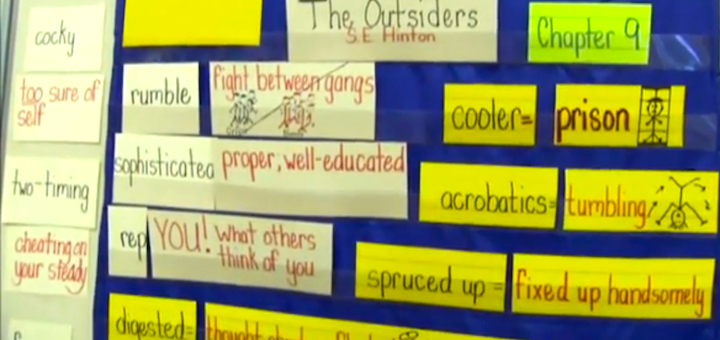 cocky
too sure of
self
two-timing
cheating on
your steady
The Outsiders
S.E. Hinton
Chapter 9
rumble
fight between gangs
cooler=
prison
sophisticated
proper, well-educated
acrobatics=
tumbling
rep
YOU! What others
think of you
spruced up =
fixed up handsomely
digested=
thought